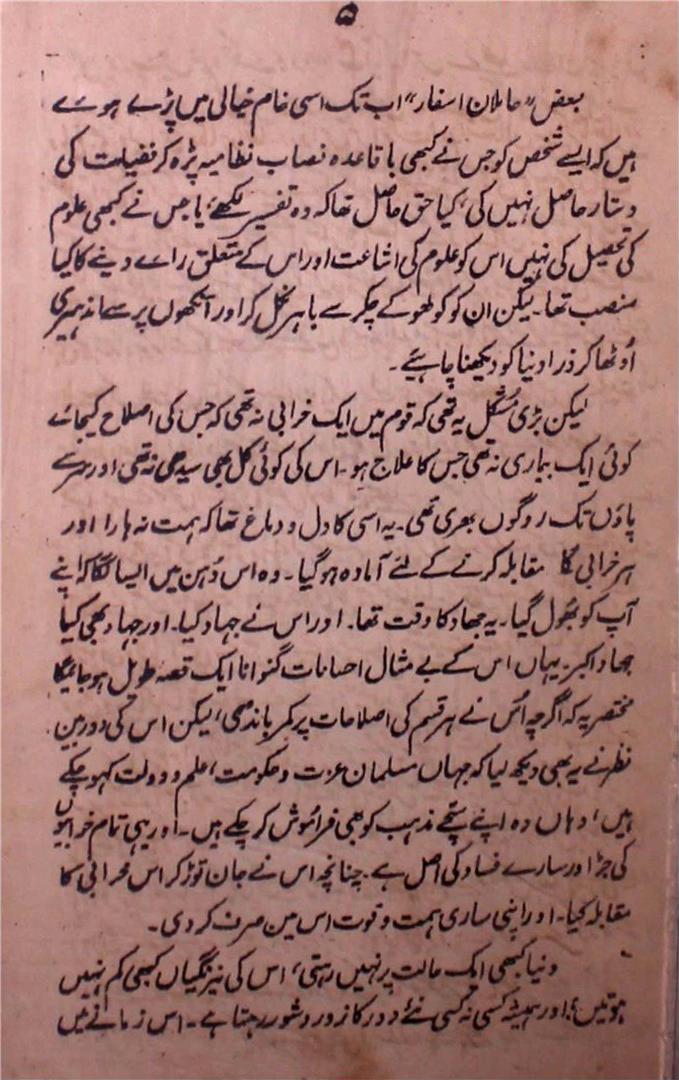 ۵
بعض "حاملان اسفار" اب تک اسی خام خیالی میں پڑے ہوے
ہیں کہ ایسے شخص کو جس نے کبھی باقاعدہ نصاب نظامیہ پڑہ کر فضیلت کی
دستار حاصل نہیں کی، کیا حق حاصل تھا کہ وہ تفسیر لکھے، یا جس نے کبھی علوم
کی تحصیل کی نہیں اس کو علوم کی اشاعت اور اس کے متعلق راے دینے کا کیا
منصب تھا۔ لیکن ان کو کولھو کے چکر سے باہر نکل کر اور آنکھوں پر سے اندہیری
اُوٹھا کر ذرا دنیا کو دیکھنا چاہئیے۔
لیکن بڑی مشکل یہ تھی کہ قوم میں ایک خرابی نہ تھی کہ جس کی اصلاح کیجاے
کوئی ایک بیماری نہ تھی جس کا علاج ہو۔ اس کی کوئی کل بھی سیدھی نہ تھی اور سرسے
پاؤں تک روگوں بھری تھی۔ یہ اسی کا دل و دماغ تھا کہ ہمت نہ ہارا اور
ہر خرابی کا مقابلہ کرنے کے لئے آمادہ ہوگیا۔ وہ اس دُہن میں ایسا لگا کہ اپنے
آپ کو بھُول گیا۔ یہ جھاد کا وقت تھا۔ اور اس نے جہاد کیا۔ اور جہاد بھی کیا
جھاد اکبر۔ یہاں اس کے بے مثال احسانات گنوانا ایک قصہ طویل ہوجائیگا
مختصر یہ کہ اگرچہ اُس نے ہر قسم کی اصلاحات پر کمر باندھی، لیکن اس کی دوربین
نظر نے یہ بھی دیکھ لیا کہ جہاں مسلمان عزت و حکومت، علم و دولت کہوچکے
ہیں، وہاں وہ اپنے سچے مذہب کو بھی فراموش کرچکے ہیں۔ اور یہی تمام خرابیوں
کی جڑ اور سارے فساد کی اصل ہے۔ چنانچہ اس نے جان توڑ کر اس خرابی کا
مقابلہ کیا۔ اور اپنی ساری ہمت و قوت اس مین صرف کردی۔
دنیا کبھی ایک حالت پر نہیں رہتی، اس کی نیرنگیاں کبھی کم نہیں
ہوتیں؛ اور ہمیشہ کسی نہ کسی نئے دور کا زور و شور رہتا ہے۔ اس زمانے میں